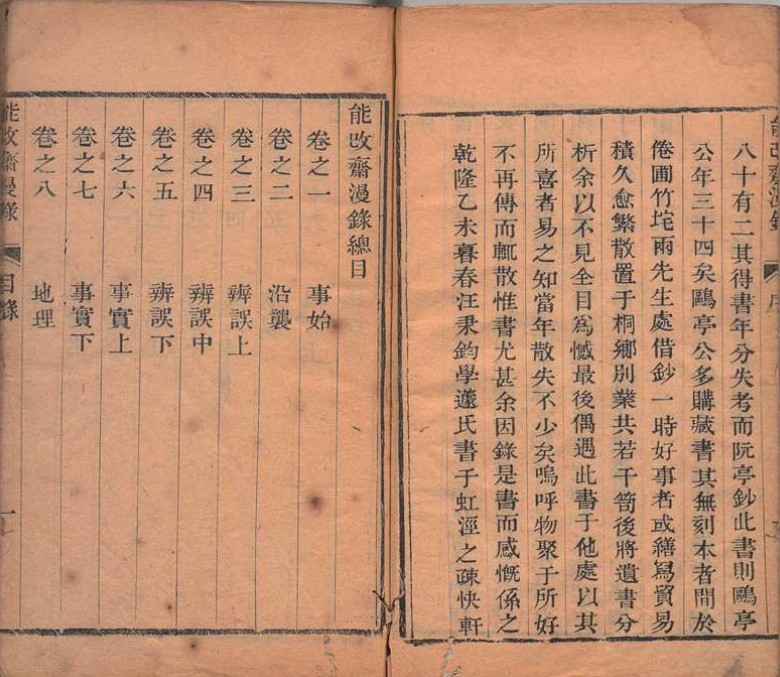 能改齋漫錄
序
八十有二其得書年分失考而阮亭鈔此書則鷗亭
公年三十四矣鷗亭公多購藏書其無刻本者間於
倦圃竹垞兩先生處借鈔一時好事者或繕寫貿易
積久愈繁散置于桐鄉別業共若干笥後將遺書分
析余以不見全目爲憾最後偶遇此書于他處以其
所喜者易之知當年散失不少矣嗚呼物聚于所好
不再傳而輒散惟書尤甚余因錄是書而感慨係之
乾隆乙未暮春汪秉鈞學蘧氏書于虹涇之疎快軒
能改齋漫錄總目
卷之一 事始
卷之二 沿襲
卷之三 辨誤上
卷之四 辨誤中
卷之五 辨誤下
卷之六 事實上
卷之七 事實下
卷之八 地理
能改齋漫錄 目錄 一